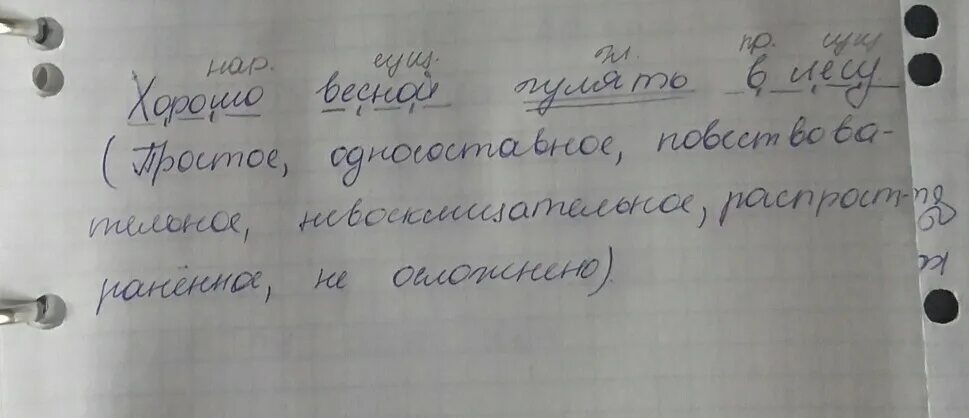 нар. сущ. гл. пр. сущ
Хорошо весной гулять в лесу
(Простое, односоставное, повествова-
тельное, невосклицательное, распрост-
ранённое, не осложнено).